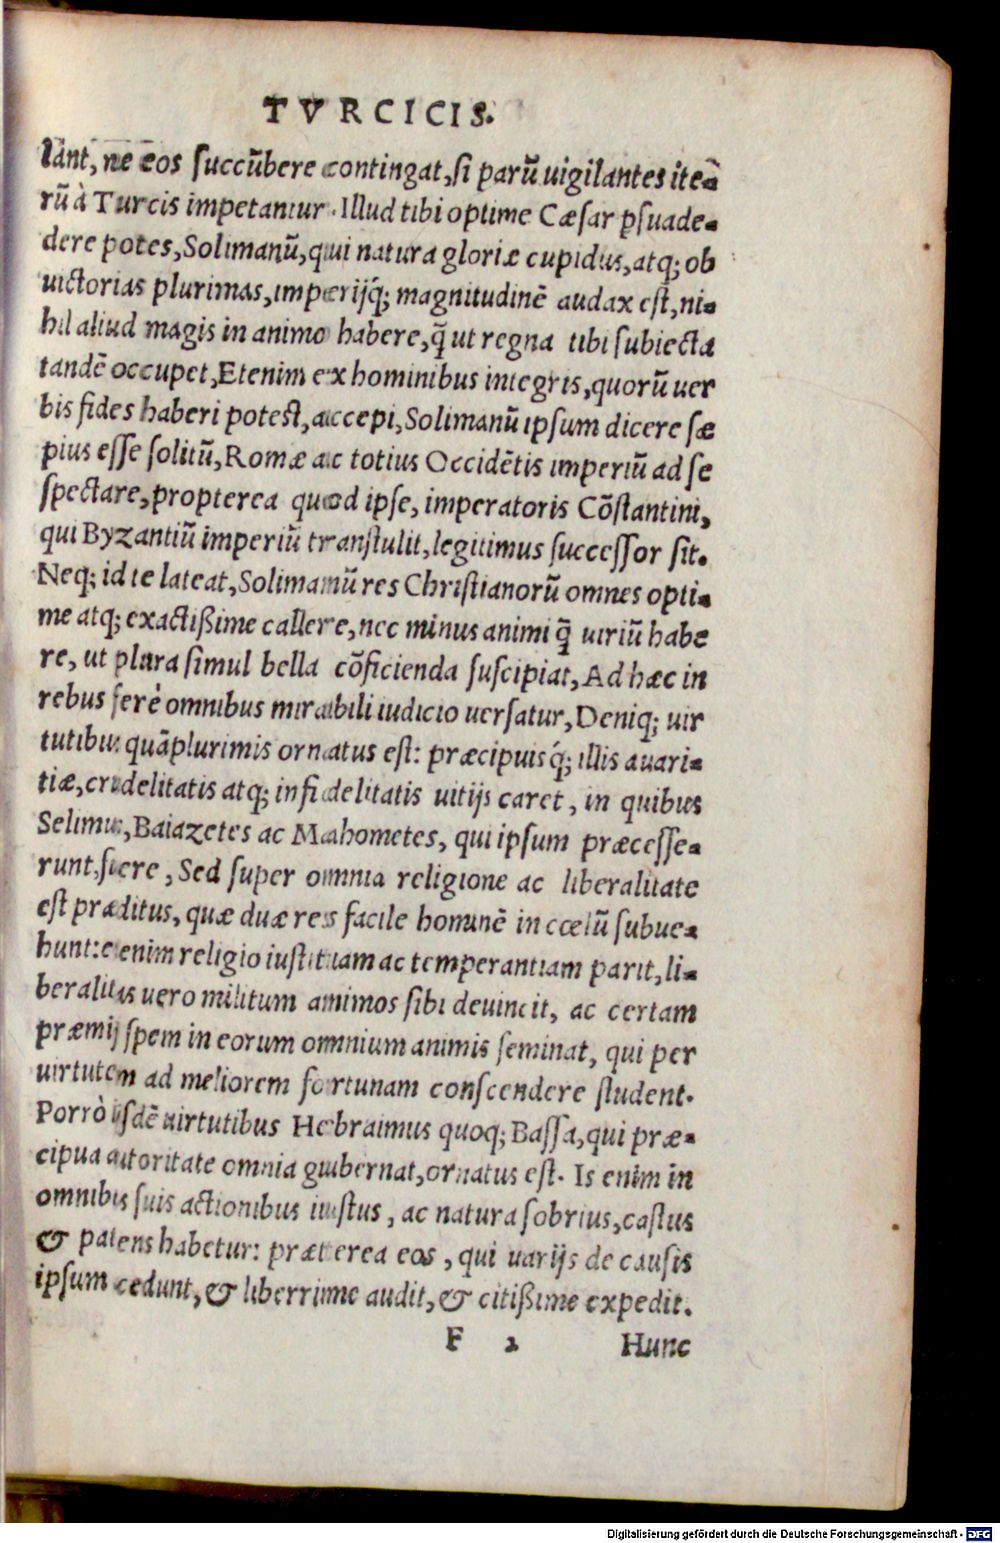 TVRCICIS.
lant, ne eos succūbere contingat, si parū uigilantes ite-
rū à Turcis impetantur. Illud tibi optime Cæsar ꝑsuade-
dere potes, Solimanū, qui natura gloriæ cupidus, atq; ob
uictorias plurimas, imperijq́; magnitudinē audax est, ni-
hil aliud magis in animo habere, q̃ ut regna tibi subiecta
tandē occupet, Etenim ex hominibus integris, quorū uer
bis fides haberi potest, accepi, Solimanū ipsum dicere sæ
pius esse solitū, Romæ ac totius Occidētis imperiū ad se
spectare, propterea quod ipse, imperatoris Cōstantini,
qui Byzantiū imperiū transtulit, legitimus successor sit.
Neq; id te lateat, Solimanū res Christianorū omnes opti-
me atq; exactißime callere, nec minus animi q̃ uiriū habe
re, ut plura simul bella cōficienda suscipiat, Ad hæc in
rebus ferè omnibus mirabili iudicio uersatur, Deniq; uir
tutibus quāplurimis ornatus est: præcipuis q́; illis auari-
tiæ, crudelitatis atq; infidelitatis uitijs caret, in quibus
Selimus, Baiazetes ac Mahometes, qui ipsum præcesse-
runt, fuere, Sed super omnia religione ac liberalitate
est præditus, quæ duæ res facile hominē in cœlū subue-
hunt: etenim religio iustitiam ac temperantiam parit, li-
beralitas uero militum animos sibi deuincit, ac certam
præmij spem in eorum omnium animis seminat, qui per
uirtutem ad meliorem fortunam conscendere student.
Porrò ijsdē uirtutibus Hebraimus quoq; Bassa, qui præ-
cipua autoritate omnia gubernat, ornatus est. Is enim in
omnibus suis actionibus iustus, ac natura sobrius, castus
& patens habetur: præterea eos, qui uarijs de causis
ipsum cedunt, & liberrime audit, & citißime expedit.
F 2 Hunc
Digitalisierung gefördert durch die Deutsche Forschungsgemeinschaft - DFG